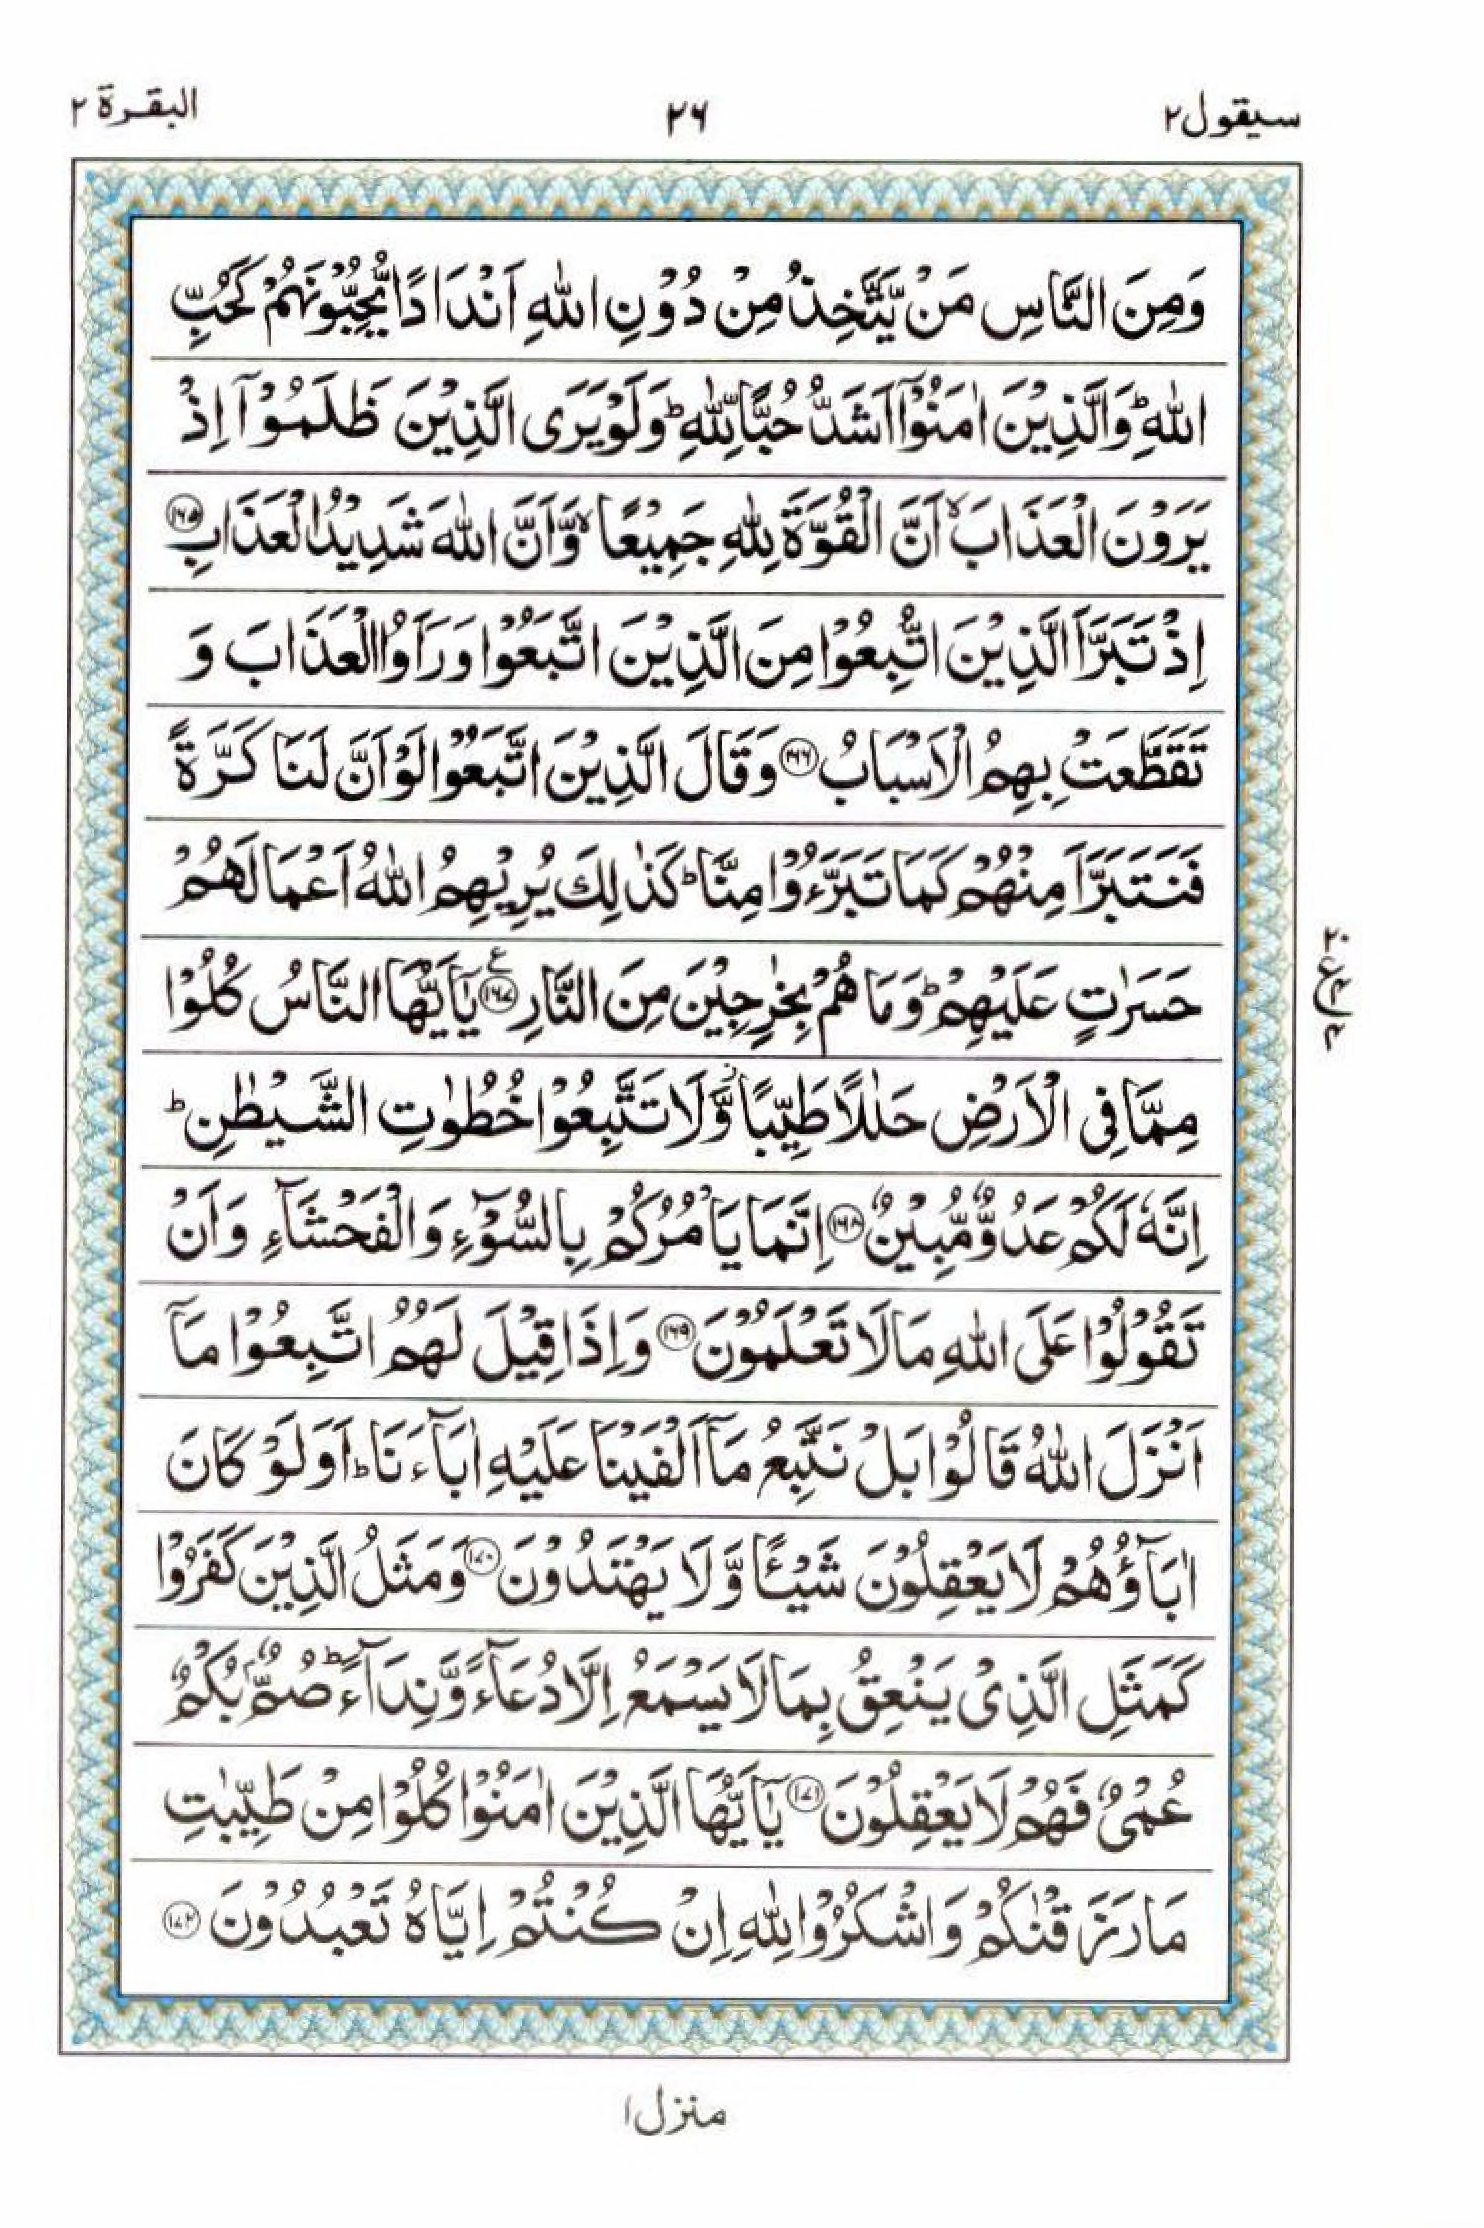 سيقول ٢
٢٦
البقرة ٢
وَمِنَ النَّاسِ مَنْ يَّتَّخِذُ مِنْ دُوْنِ اللّٰهِ اَنْدَادًا يُّحِبُّوْنَهُمْ كَحُبِّ
اللّٰهِ ؕ وَالَّذِيْنَ اٰمَنُوْۤا اَشَدُّ حُبًّا لِّلّٰهِ ؕ وَلَوْ يَرَى الَّذِيْنَ ظَلَمُوْۤا اِذْ
يَرَوْنَ الْعَذَابَ ۙ اَنَّ الْقُوَّةَ لِلّٰهِ جَمِيْعًا ۙ وَّاَنَّ اللّٰهَ شَدِيْدُ الْعَذَابِ ﴿۱۶۵﴾
اِذْ تَبَرَّاَ الَّذِيْنَ اتُّبِعُوْا مِنَ الَّذِيْنَ اتَّبَعُوْا وَرَاَوُا الْعَذَابَ وَ
تَقَطَّعَتْ بِهِمُ الْاَسْبَابُ ﴿۱۶۶﴾ وَقَالَ الَّذِيْنَ اتَّبَعُوْا لَوْ اَنَّ لَنَا كَرَّةً
فَنَتَبَرَّاَ مِنْهُمْ كَمَا تَبَرَّءُوْا مِنَّا ؕ كَذٰلِكَ يُرِيْهِمُ اللّٰهُ اَعْمَالَهُمْ
حَسَرٰتٍ عَلَيْهِمْ ؕ وَمَا هُمْ بِخٰرِجِيْنَ مِنَ النَّارِ ﴿۱۶۷﴾ ع يٰۤاَيُّهَا النَّاسُ كُلُوْا
مِمَّا فِى الْاَرْضِ حَلٰلًا طَيِّبًا ۖ وَّلَا تَتَّبِعُوْا خُطُوٰتِ الشَّيْطٰنِ ؕ
اِنَّهٗ لَكُمْ عَدُوٌّ مُّبِيْنٌ ﴿۱۶۸﴾ اِنَّمَا يَاْمُرُكُمْ بِالسُّوْٓءِ وَالْفَحْشَآءِ وَاَنْ
تَقُوْلُوْا عَلَى اللّٰهِ مَا لَا تَعْلَمُوْنَ ﴿۱۶۹﴾ وَاِذَا قِيْلَ لَهُمُ اتَّبِعُوْا مَاۤ
اَنْزَلَ اللّٰهُ قَالُوْا بَلْ نَتَّبِعُ مَاۤ اَلْفَيْنَا عَلَيْهِ اٰبَآءَنَا ؕ اَوَلَوْ كَانَ
اٰبَآؤُهُمْ لَا يَعْقِلُوْنَ شَيْـًٔا وَّلَا يَهْتَدُوْنَ ﴿۱۷۰﴾ وَمَثَلُ الَّذِيْنَ كَفَرُوْا
كَمَثَلِ الَّذِىْ يَنْعِقُ بِمَا لَا يَسْمَعُ اِلَّا دُعَآءً وَّنِدَآءً ؕ صُمٌّۢ بُكْمٌ
عُمْىٌ فَهُمْ لَا يَعْقِلُوْنَ ﴿۱۷۱﴾ يٰۤاَيُّهَا الَّذِيْنَ اٰمَنُوْا كُلُوْا مِنْ طَيِّبٰتِ
مَا رَزَقْنٰكُمْ وَاشْكُرُوْا لِلّٰهِ اِنْ كُنْتُمْ اِيَّاهُ تَعْبُدُوْنَ ﴿۱۷۲﴾
منزل ١